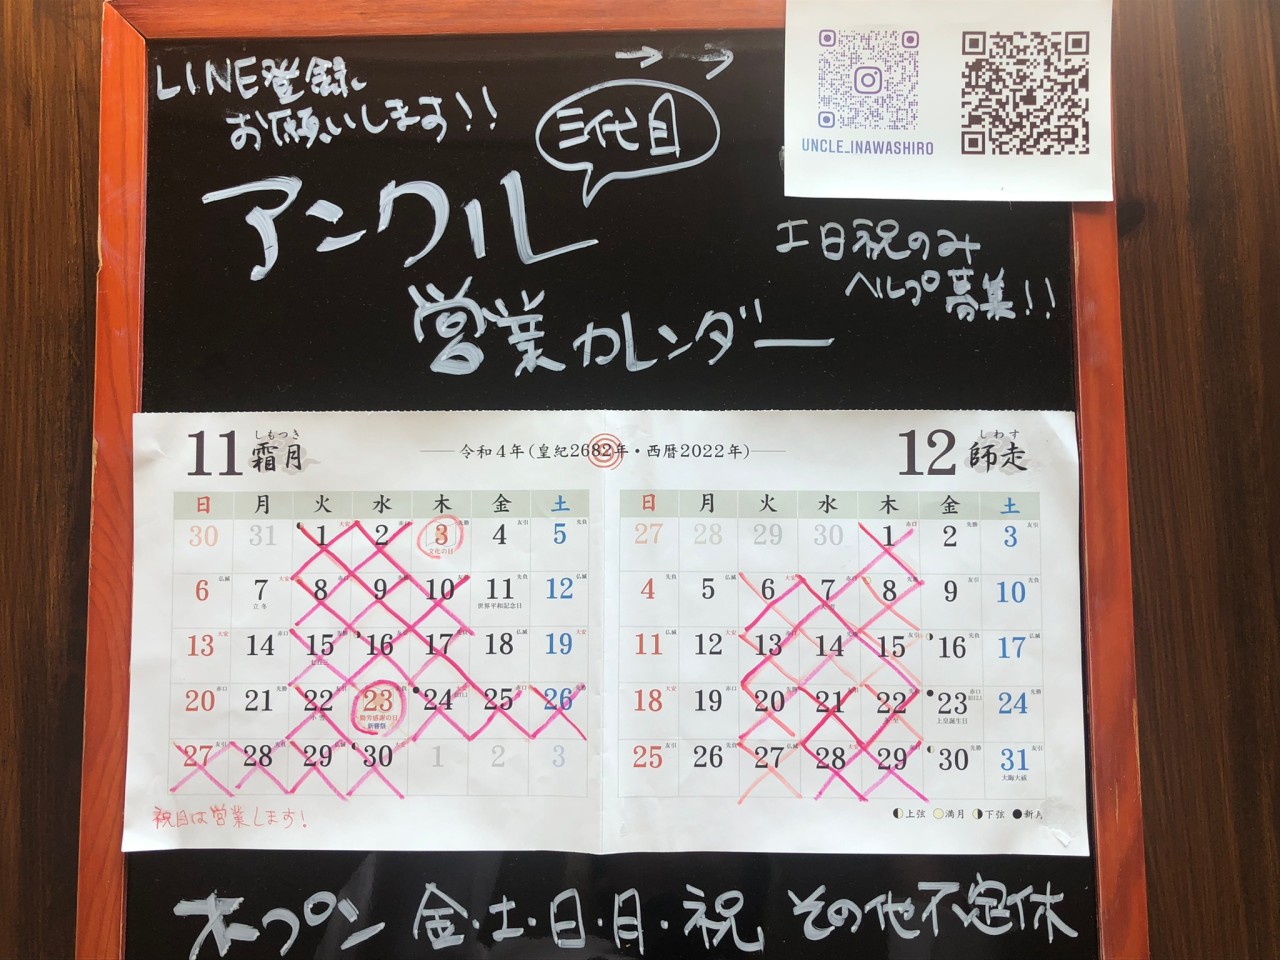 LINE登録
お願いします!!
→→
三代目
アンクル
営業カレンダー
UNCLE_INAWASHIRO
土日祝のみ
ヘルプ募集!!
11 霜月 しもつき
令和4年(皇紀2682年・西暦2022年)
12 師走 しわす
日 月 火 水 木 金 土
30 31 1 2 3 4 5
文化の日
6 7 8 9 10 11 12
立冬 世界平和記念日
13 14 15 16 17 18 19
七五三
20 21 22 23 24 25 26
小雪 勤労感謝の日
新嘗祭
27 28 29 30 1 2 3
祝日は営業します!
日 月 火 水 木 金 土
27 28 29 30 1 2 3
4 5 6 7 8 9 10
大雪
11 12 13 14 15 16 17
18 19 20 21 22 23 24
冬至 上皇誕生日
25 26 27 28 29 30 31
大晦大祓
上弦 満月 下弦 新月
オープン 金・土・日・月・祝 その他不定休